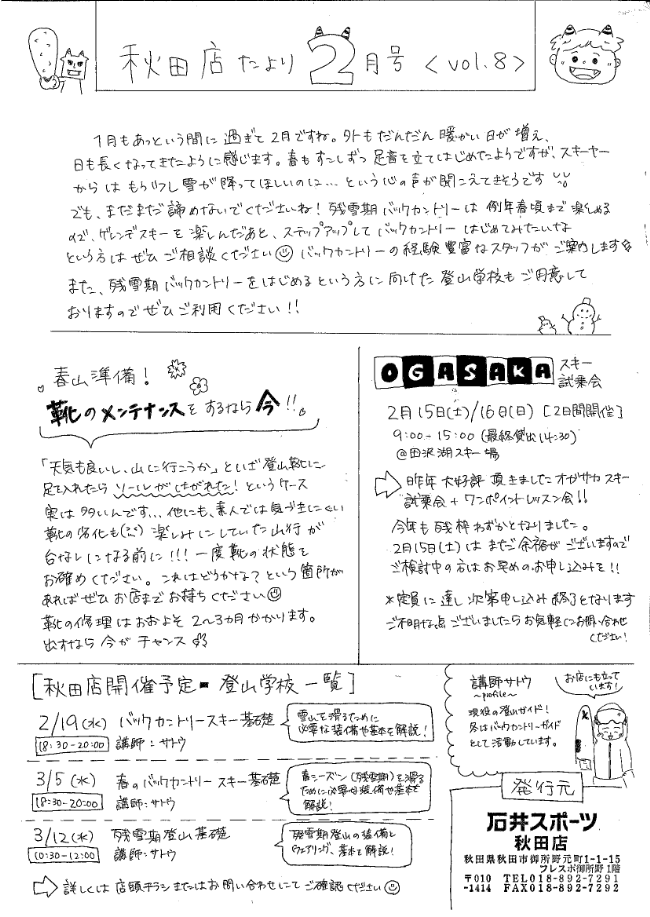 秋田店だより 2月号 <vol.8>
1月もあっという間に過ぎて2月ですね。外もだんだん暖かい日が増え、
日も長くなってきたように感じます。春もすこしずつ足音を立てはじめたようですが、スキーヤー
からはもう少し雪が降ってほしいのに…という心の声が聞こえてきそうです
でも、まだまだ諦めないでくださいね!残雪期バックカントリーは例年春頃まで楽しめる
ので、ゲレンデスキーを楽しんだあと、ステップアップしてバックカントリーはじめてみたいな
という方はぜひご相談ください バックカントリーの経験豊富なスタッフがご案内します
また、残雪期バックカントリーをはじめるという方に向けた登山学校もご用意して
おりますのでぜひご利用ください!!
春山準備!
靴のメンテナンスをするなら今!!
「天気も良いし、山に行こうか」といざ登山靴に
足を入れたらソールがはがれた!というケース
実は多いんです…他にも、素人では気づきにくい
靴の劣化も 楽しみにしていた山行が
台なしになる前に!!!一度靴の状態を
お確めください。これはどうかな?という箇所が
あればぜひお店までお持ちください
靴の修理はおおよそ2~3ヵ月かかります。
出すなら今がチャンス
OGASAKA スキー
試乗会
2月15日(土)/16日(日)[2日間開催]
9:00-15:00(最終貸出14:30)
@田沢湖スキー場
昨年大好評頂きましたオガサカスキー
試乗会+ワンポイントレッスン会!!
今年も残枠わずかとなりました。
2月15日(土)はまだ余裕がございますので
ご検討中の方はお早めのお申し込みを!!
*定員に達し次第申し込み終了となります
ご不明な点ございましたらお気軽にお問い合わせ
ください!
[秋田店開催予定 登山学校一覧]
2/19(水) バックカントリースキー基礎
18:30-20:00 講師:サトウ
雪山を滑るために
必要な装備や基本を解説!
3/5(水) 春のバックカントリースキー基礎
18:30-20:00 講師:サトウ
春シーズン(残雪期)を滑る
ために必要な装備や基本を
解説!
3/12(水) 残雪期登山基礎
10:30-12:00 講師:サトウ
残雪期登山の装備と
ウェアリング、基本を解説!
詳しくは店頭チラシまたはお問い合わせにてご確認ください
講師サトウ
~profile~
現役の登山ガイド!
冬はバックカントリーガイド
として活動しています。
お店にも立って
います!
発行元
石井スポーツ
秋田店
秋田県秋田市御所野元町1-1-15
フレスポ御所野1階
〒010 TEL018-892-7291
-1414 FAX018-892-7292